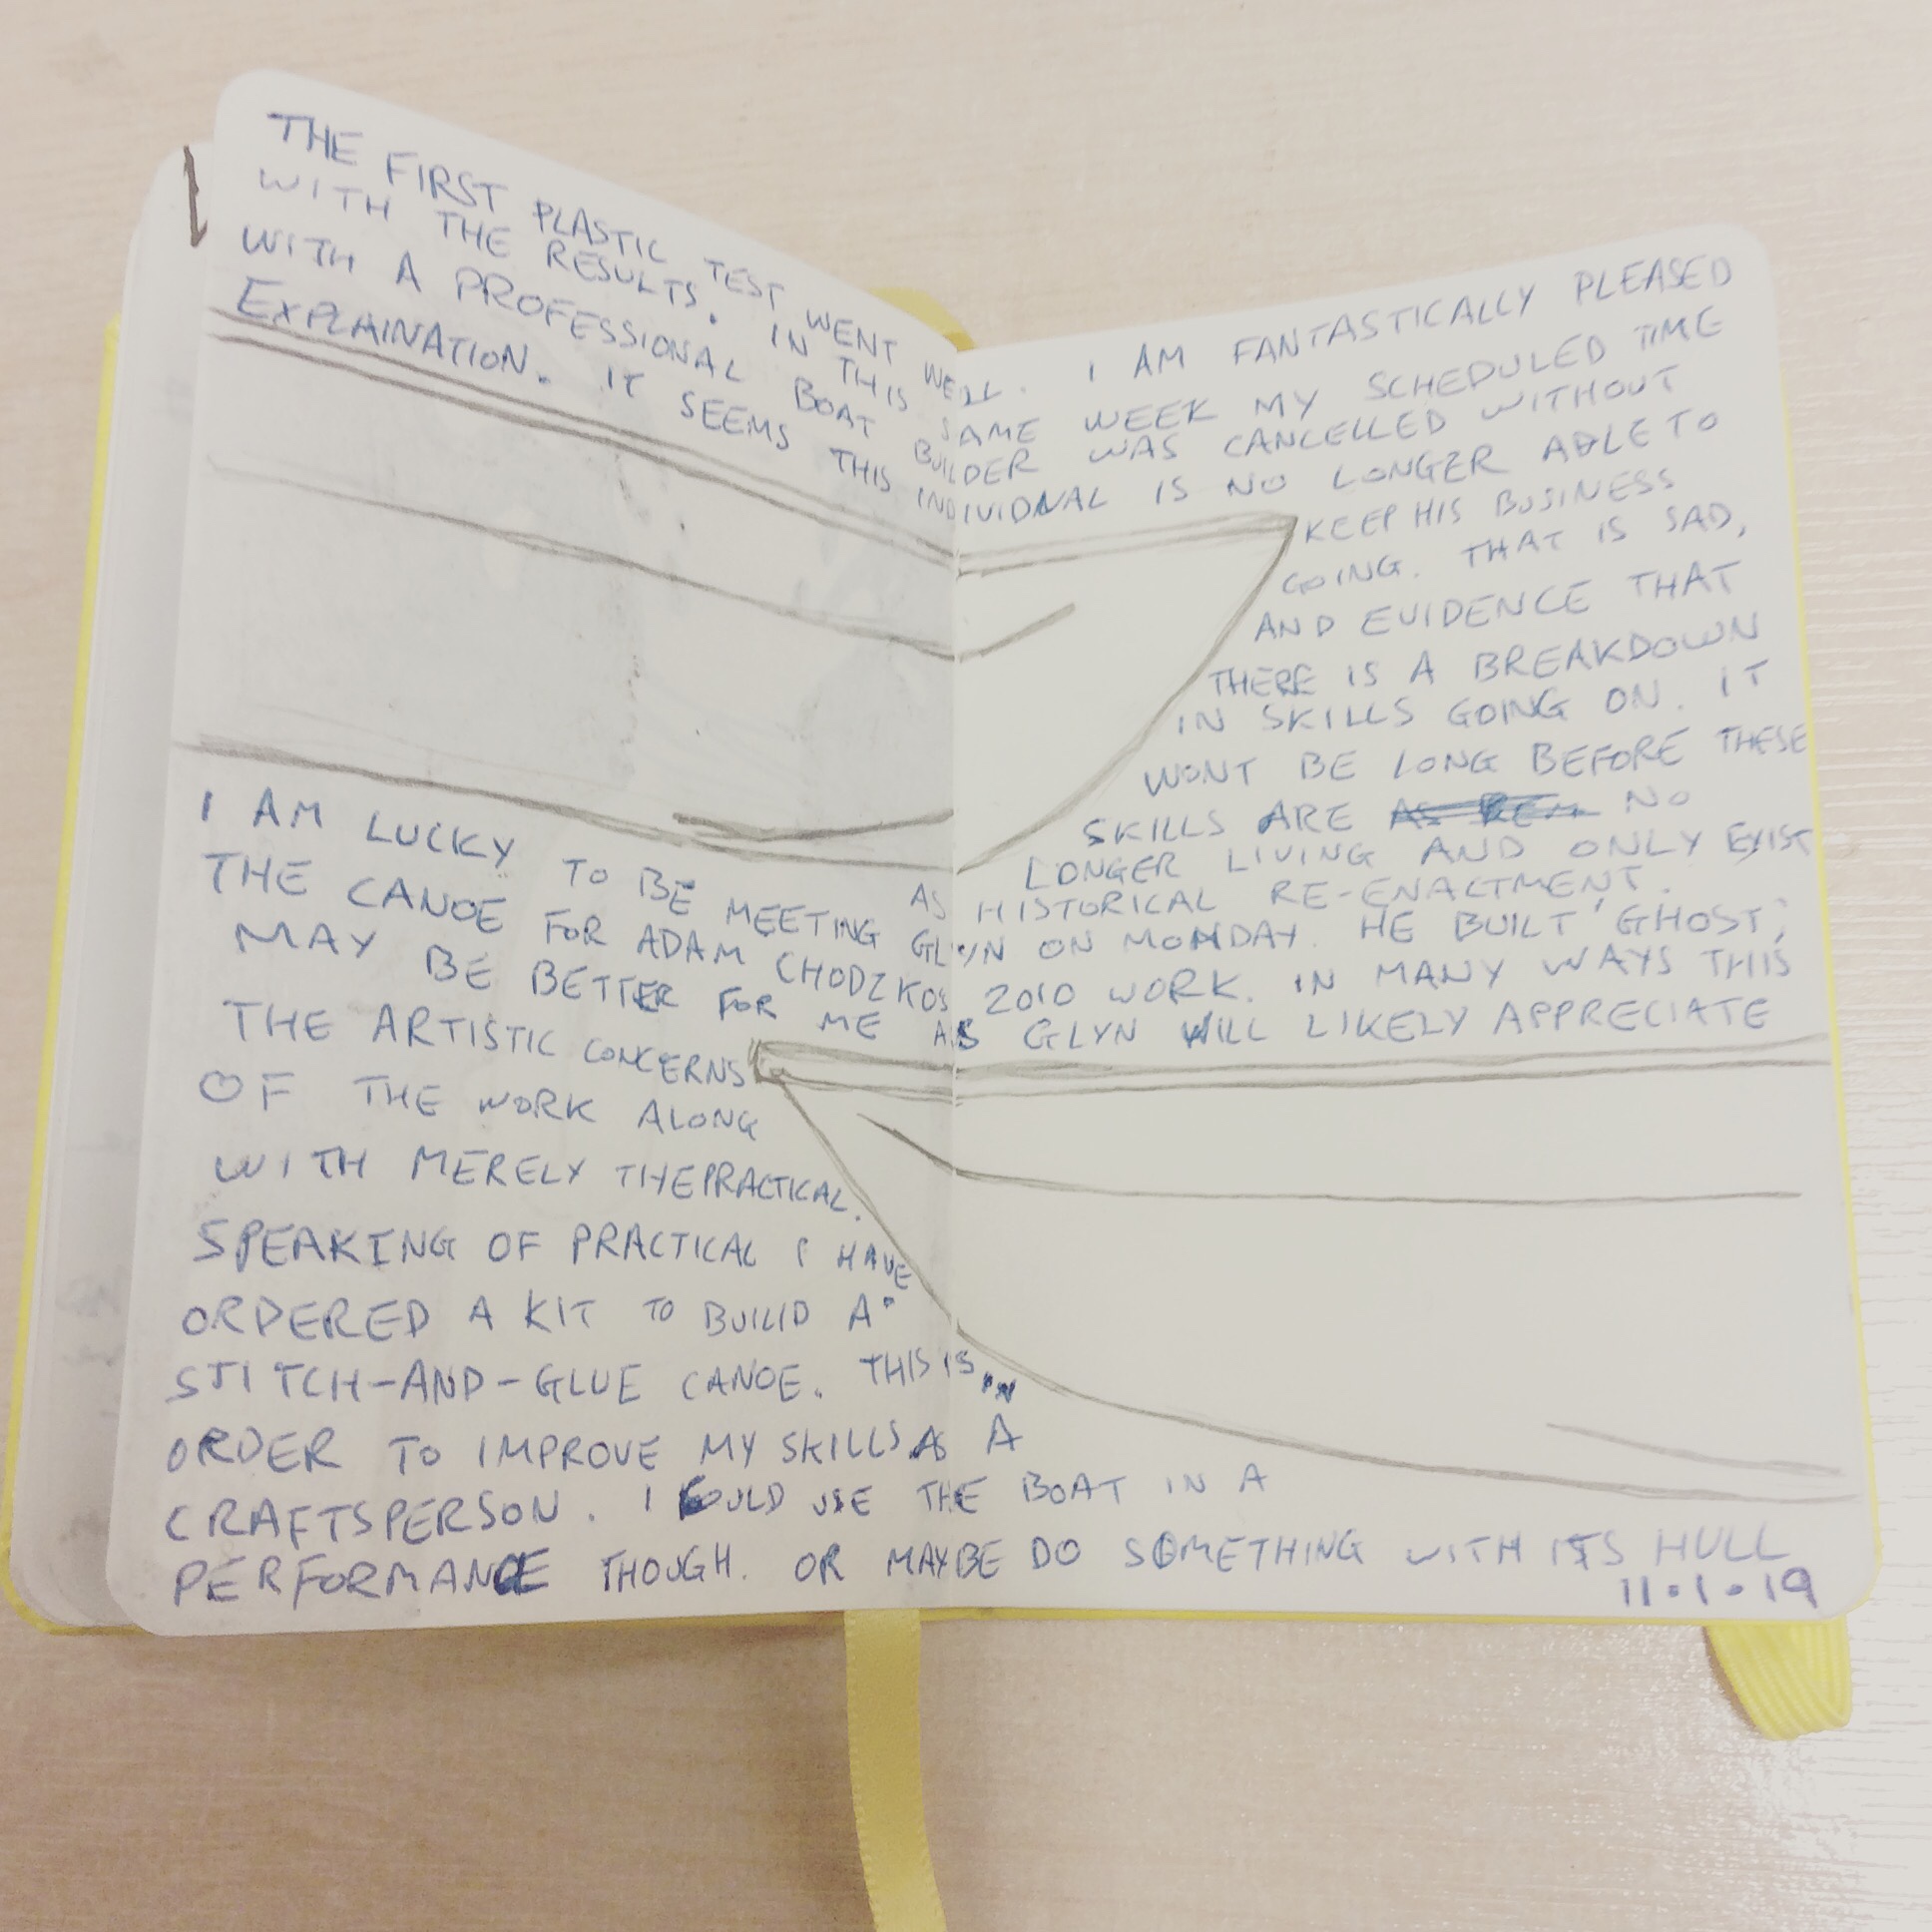 THE FIRST PLASTIC TEST WENT WELL. I AM FANTASTICALLY PLEASED
WITH THE RESULTS. IN THIS SAME WEEK MY SCHEDULED TIME
WITH A PROFESSIONAL BOAT BUILDER WAS CANCELLED WITHOUT
EXPLAINATION. IT SEEMS THIS INDIVIDUAL IS NO LONGER ABLE TO
KEEP HIS BUSINESS
GOING. THAT IS SAD,
AND EVIDENCE THAT
THERE IS A BREAKDOWN
IN SKILLS GOING ON. IT
WONT BE LONG BEFORE THESE
SKILLS ARE NO
LONGER LIVING AND ONLY EXIST
AS HISTORICAL RE-ENACTMENT.
I AM LUCKY TO BE MEETING GLYN ON MONDAY. HE BUILT 'GHOST',
THE CANOE FOR ADAM CHODZKOS 2010 WORK. IN MANY WAYS THIS
MAY BE BETTER FOR ME AS GLYN WILL LIKELY APPRECIATE
THE ARTISTIC CONCERNS
OF THE WORK ALONG
WITH MERELY THE PRACTICAL.
SPEAKING OF PRACTICAL I HAVE
ORDERED A KIT TO BUILID A
STITCH-AND-GLUE CANOE. THIS IS IN
ORDER TO IMPROVE MY SKILLS AS A
CRAFTSPERSON. I COULD USE THE BOAT IN A
PERFORMANCE THOUGH. OR MAYBE DO SOMETHING WITH ITS HULL
11.1.19